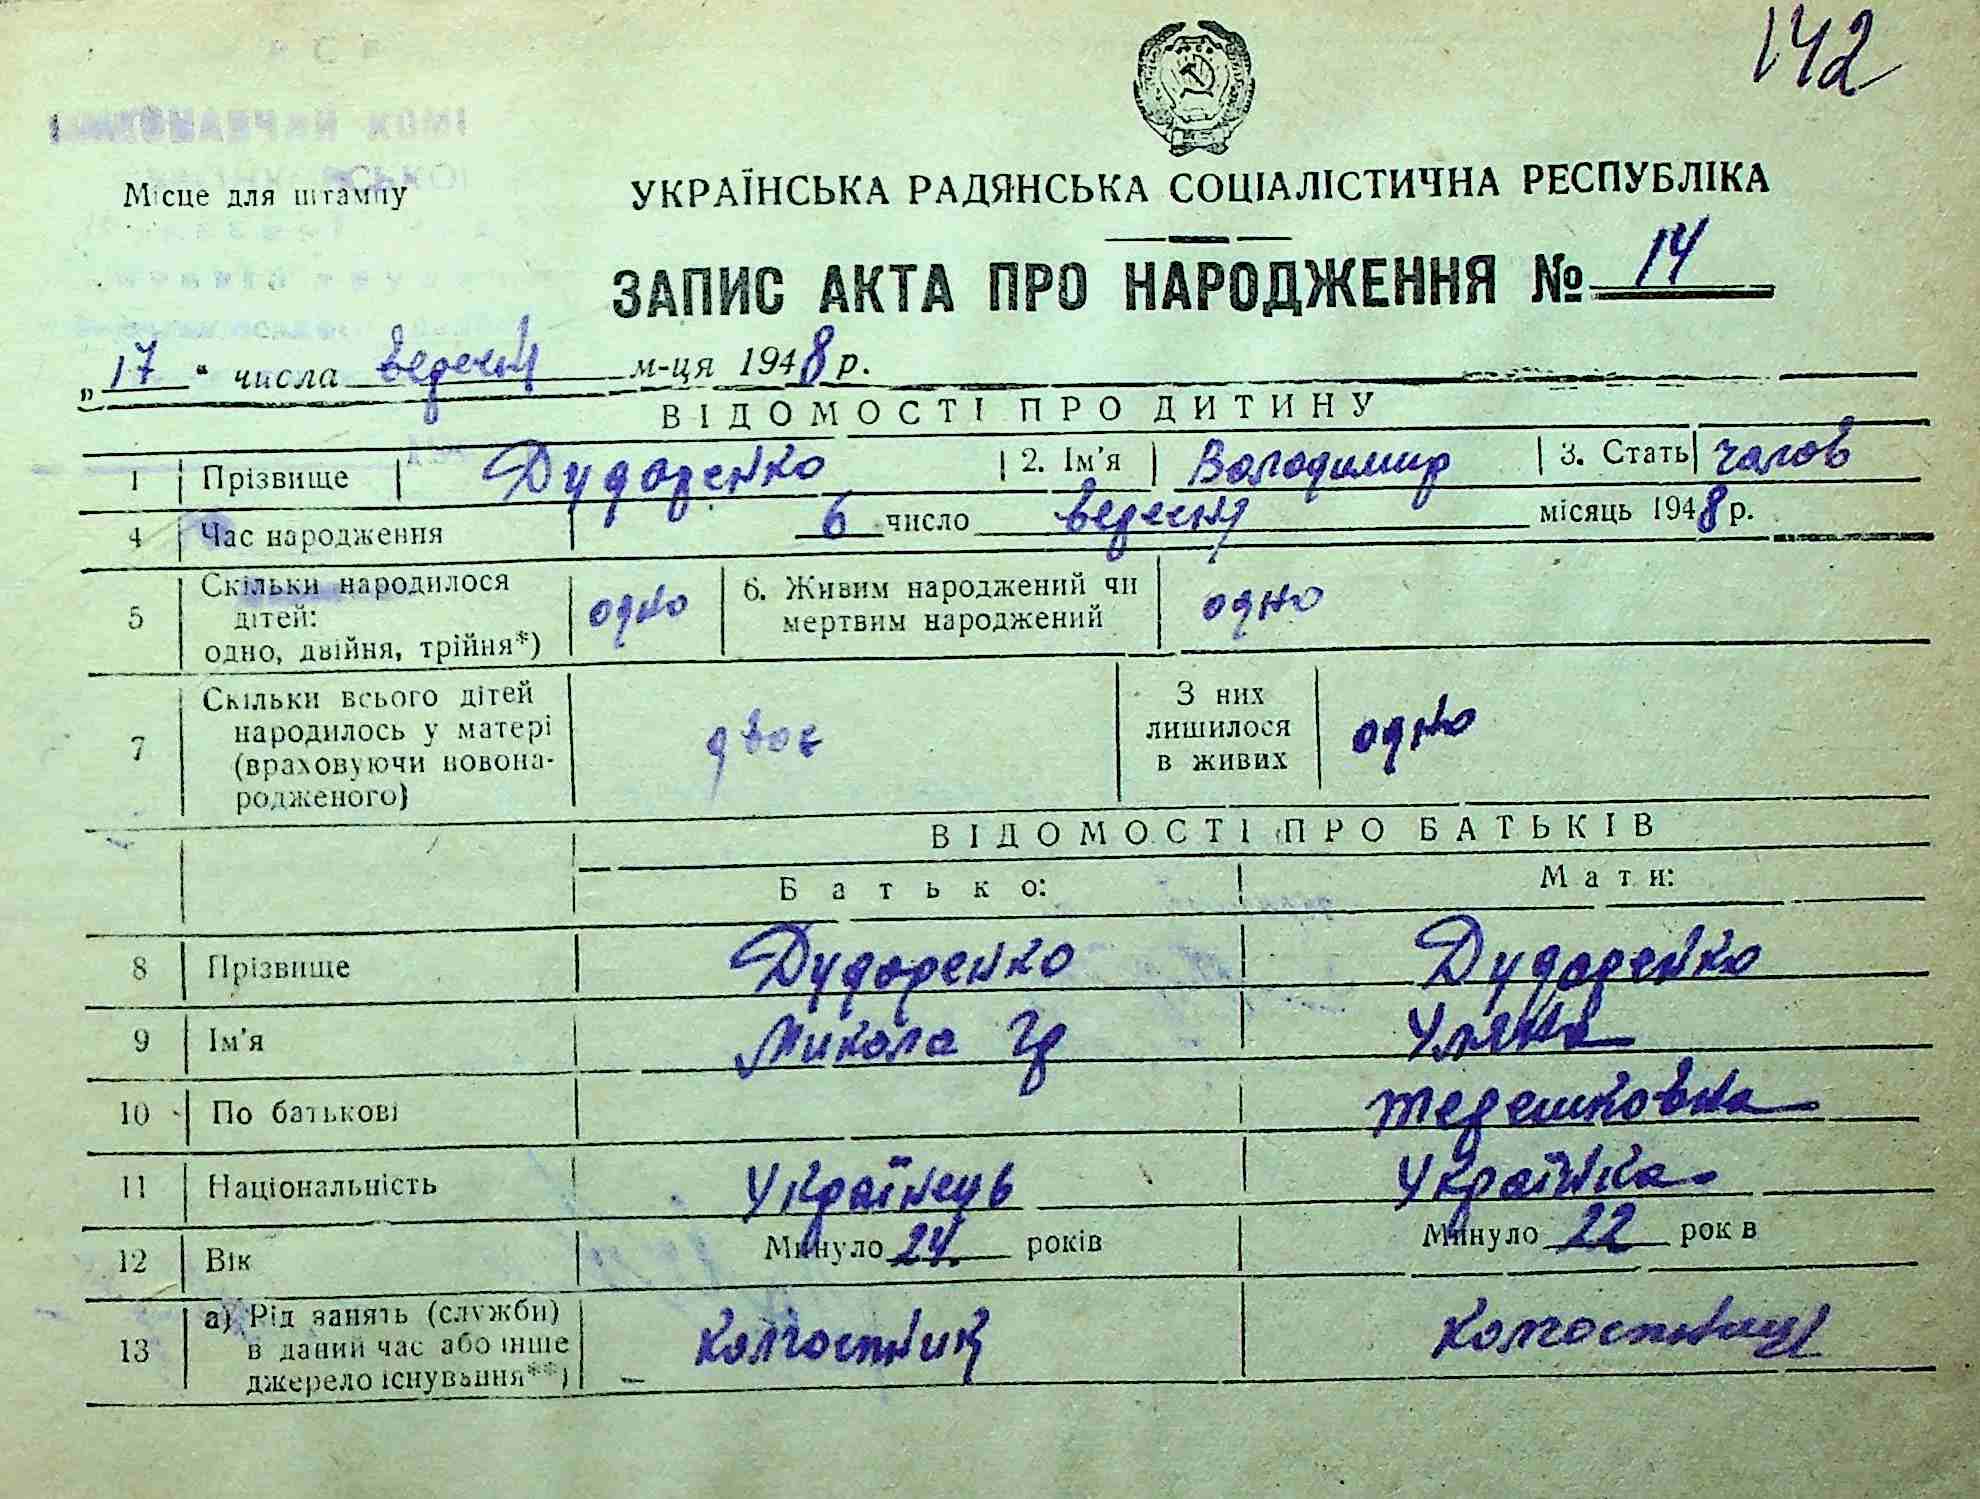 142
Місце для штампу
УКРАЇНСЬКА РАДЯНСЬКА СОЦІАЛІСТИЧНА РЕСПУБЛІКА
ЗАПИС АКТА ПРО НАРОДЖЕННЯ № 14
„17“ числа м-ця 1948 р.
ВІДОМОСТІ ПРО ДИТИНУ
1 Прізвище Дудоренко 2. Ім'я Володимир 3. Стать чолов
4 Час народження 6 число вересня місяць 1948 р.
5 Скільки народилося дітей: одно, двійня, трійня*) одно 6. Живим народжений чи мертвим народжений одно
7 Скільки всього дітей народилось у матері (враховуючи новонародженого) двоє З них лишилося в живих одно
ВІДОМОСТІ ПРО БАТЬКІВ
Батько: Мати:
8 Прізвище Дудоренко Дудоренко
9 Ім'я Микола Гр Уляна
10 По батькові Терешковна
11 Національність Українець Українка
12 Вік Минуло 24 років Минуло 22 рок в
13 а) Рід занять (служби) в даний час або інше джерело існування**) колгоспник колгоспниця